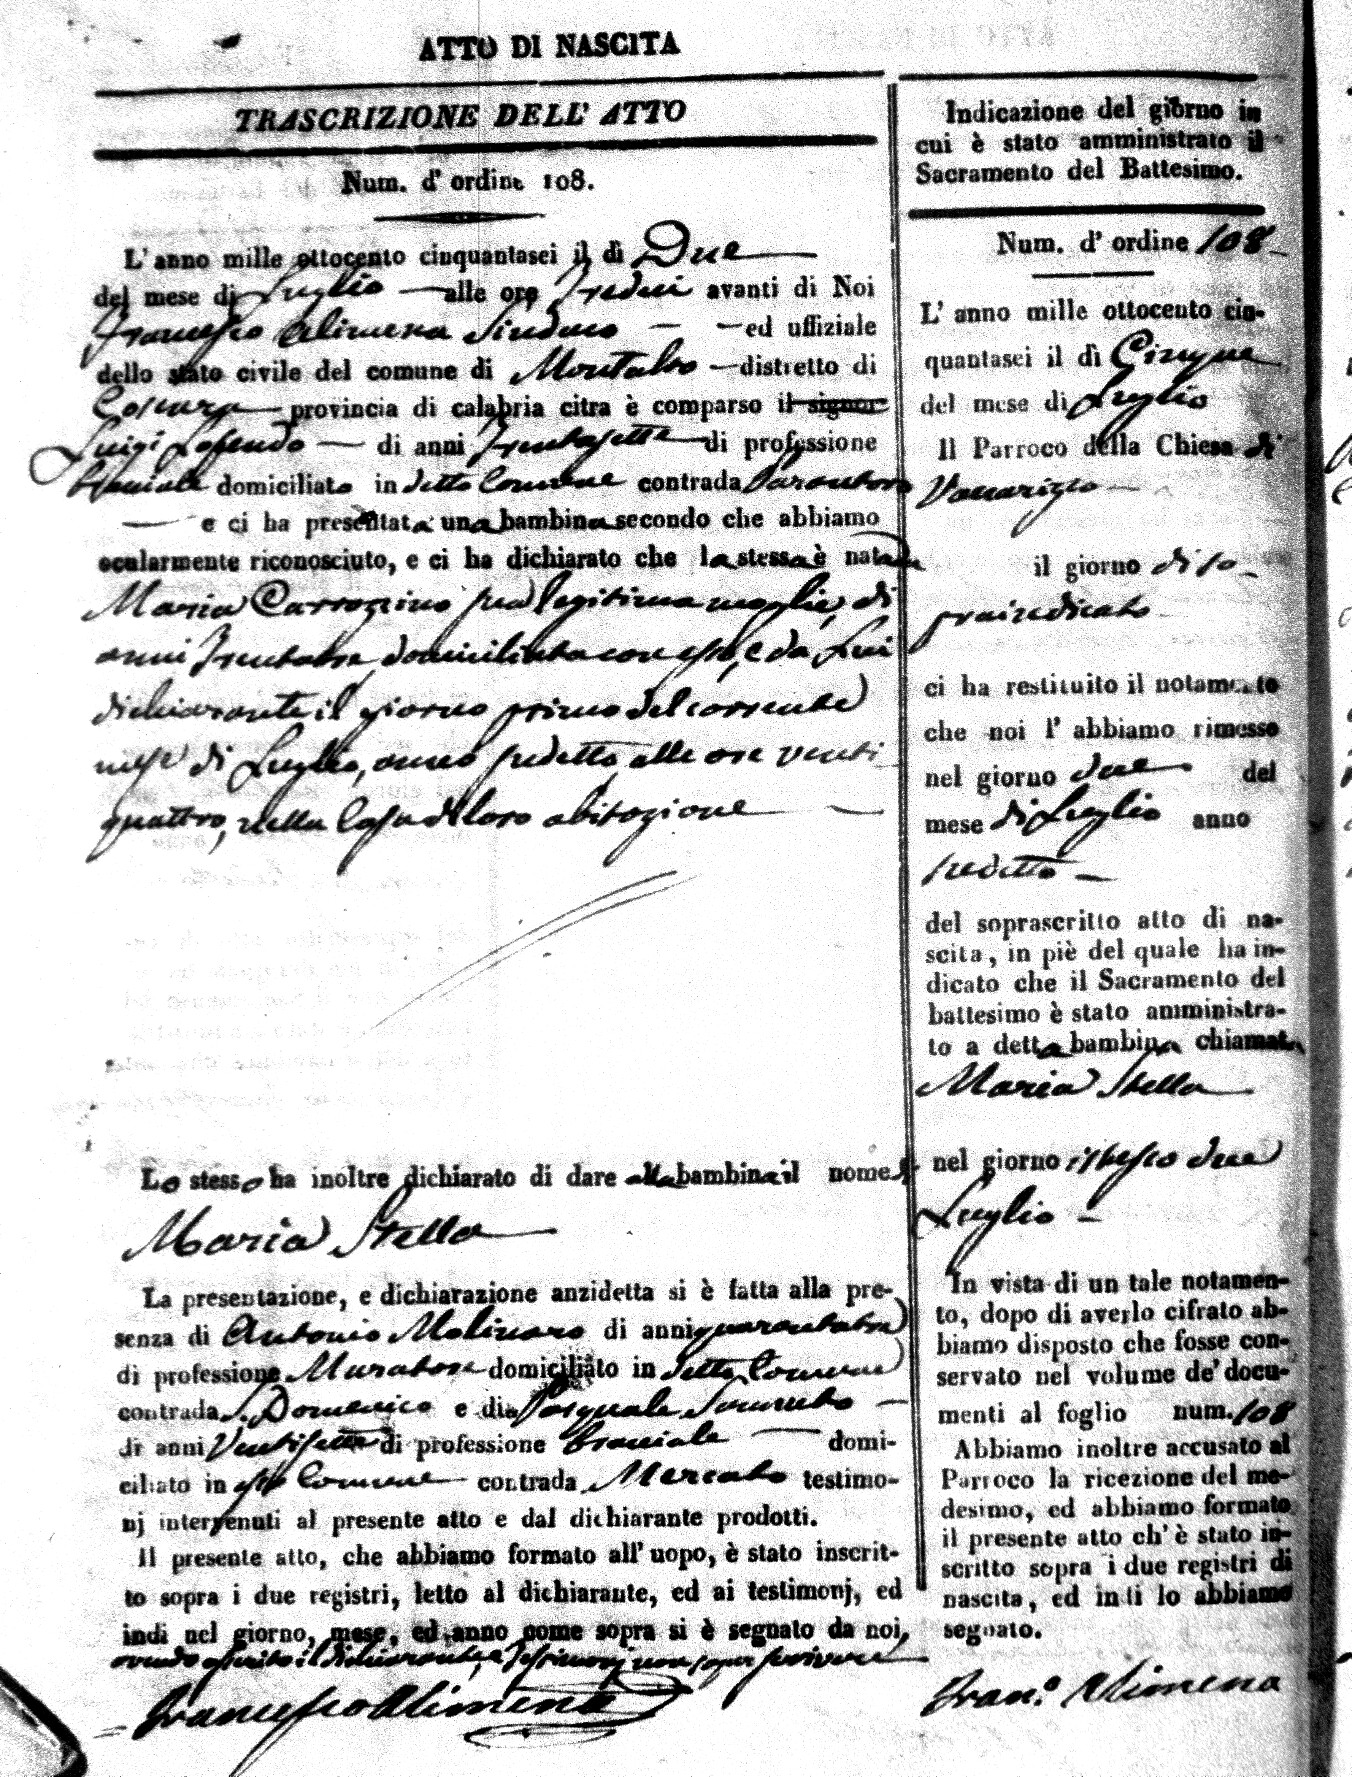 ATTO DI NASCITA
TRASCRIZIONE DELL' ATTO
Num. d' ordine 108.
L' anno mille ottocento cinquantasei il dì Due
del mese di Luglio alle ore Tredici avanti di Noi
Francesco Alimena Sindaco ed uffiziale
dello stato civile del comune di Montalto distretto di
Cosenza provincia di calabria citra è comparso il signor
Luigi di anni Trentasette di professione
Bracciale domiciliato in detto Comune contrada
e ci ha presentata una bambina secondo che abbiamo
ocularmente riconosciuto, e ci ha dichiarato che la stessa è nata da
Maria Carrozzino sua legitima moglie, di
anni Trentatre domiciliata con esso, e da Lui
dichiarante il giorno primo del corrente
mese di Luglio, anno sudetto alle ore venti
quattro, nella Casa di loro abitazione
Lo stesso ha inoltre dichiarato di dare alla bambina il nome di
Maria Stella
La presentazione, e dichiarazione anzidetta si è fatta alla pre-
senza di Antonio Molinaro di anni quarantatre
di professione Muratore domiciliato in detto Comune
contrada S. Domenico e di Pasquale
di anni Ventisette di professione Bracciale domi-
ciliato in esso Comune contrada Mercato testimo-
nj intervenuti al presente atto e dal dichiarante prodotti.
Il presente atto, che abbiamo formato all' uopo, è stato inscrit-
to sopra i due registri, letto al dichiarante, ed ai testimonj, ed
indi nel giorno, mese, ed anno come sopra si è segnato da noi,
avendo asserito il dichiarante, e Testimonj non saper scrivere
Francesco Alimena
Indicazione del giorno in
cui è stato amministrato il
Sacramento del Battesimo.
Num. d' ordine 108
L' anno mille ottocento cin-
quantasei il dì Cinque
del mese di Luglio
Il Parroco della Chiesa di
Vaccarizzo
il giorno di so
praindicato
ci ha restituito il notamento
che noi l' abbiamo rimesso
nel giorno due del
mese di Luglio anno
sudetto
del soprascritto atto di na-
scita, in piè del quale ha in-
dicato che il Sacramento del
battesimo è stato amministra-
to a detta bambina chiamata
Maria Stella
nel giorno istesso due
Luglio
In vista di un tale notamen-
to, dopo di averlo cifrato ab-
biamo disposto che fosse con-
servato nel volume de' docu-
menti al foglio num. 108
Abbiamo inoltre accusato al
Parroco la ricezione del me-
desimo, ed abbiamo formato
il presente atto ch' è stato in-
scritto sopra i due registri di
nascita, ed indi lo abbiamo
segnato.
Fran.º Alimena